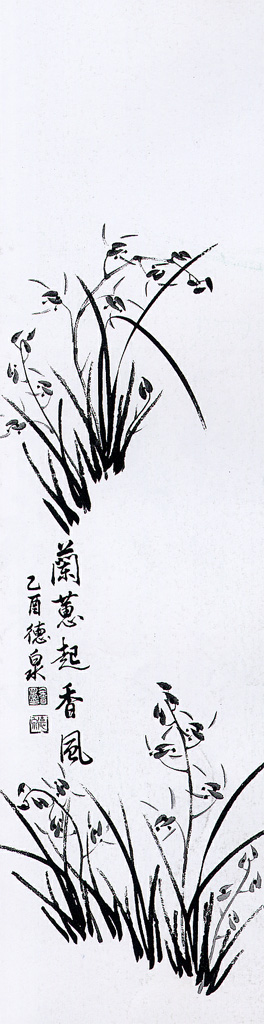 蘭蕙起香風
乙酉德泉